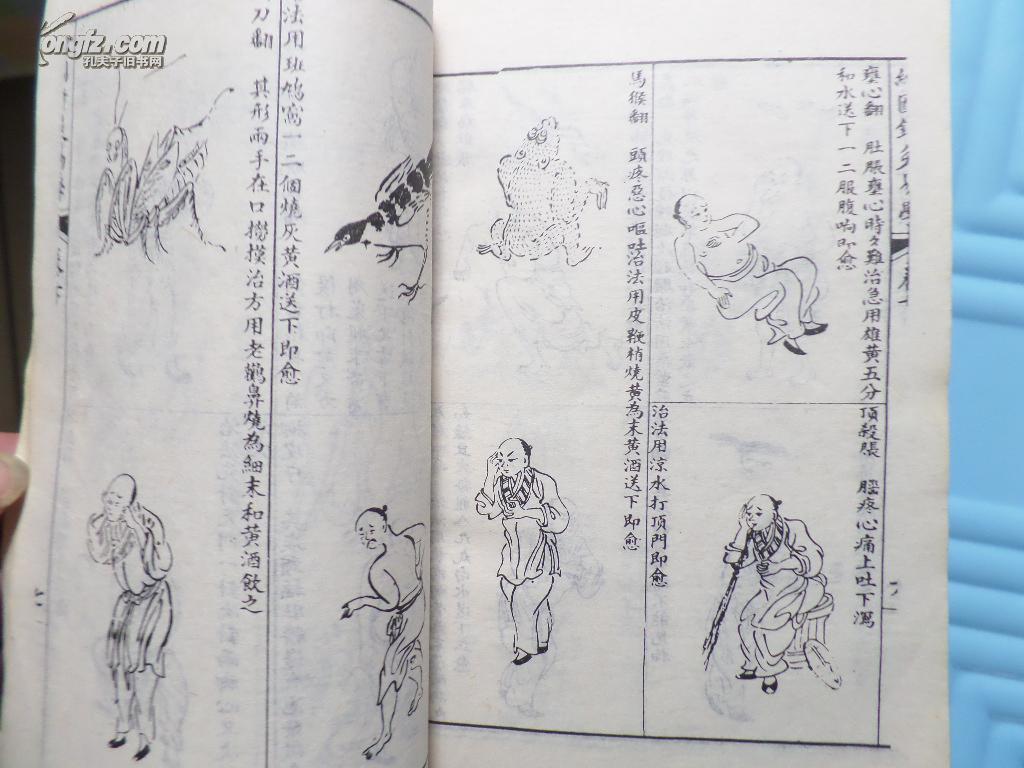 kongfz.com
孔夫子旧书网
壅心翻 肚脹壅心時々難治急用雄黃五分
和水送下一二服腹响即愈
頂殺脹 腦疼心痛上吐下瀉
治法用涼水打頂門即愈
馬猴翻 頭疼惡心嘔吐治法用皮鞭梢燒黃為末黃酒送下即愈
法用班鳩窩一二個燒灰黃酒送下即愈
刀翻 其形兩手在口撈摸治方用老鸛鼻燒為細末和黃酒飲之